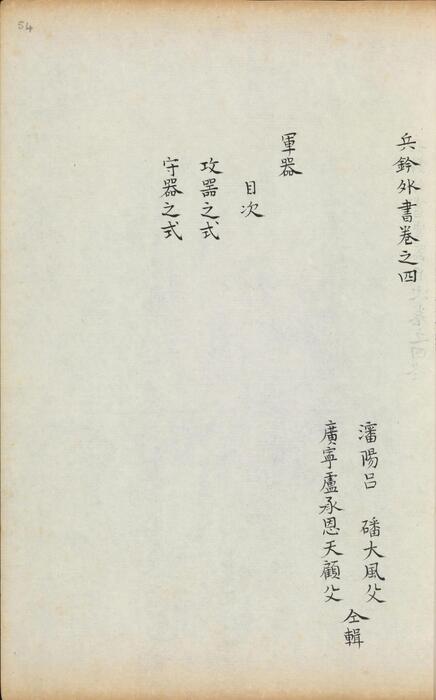 54
兵鈐外書卷之四
瀋陽呂　磻大風父
廣寧盧承恩天顧父
仝輯
軍器
目次
攻器之式
守器之式